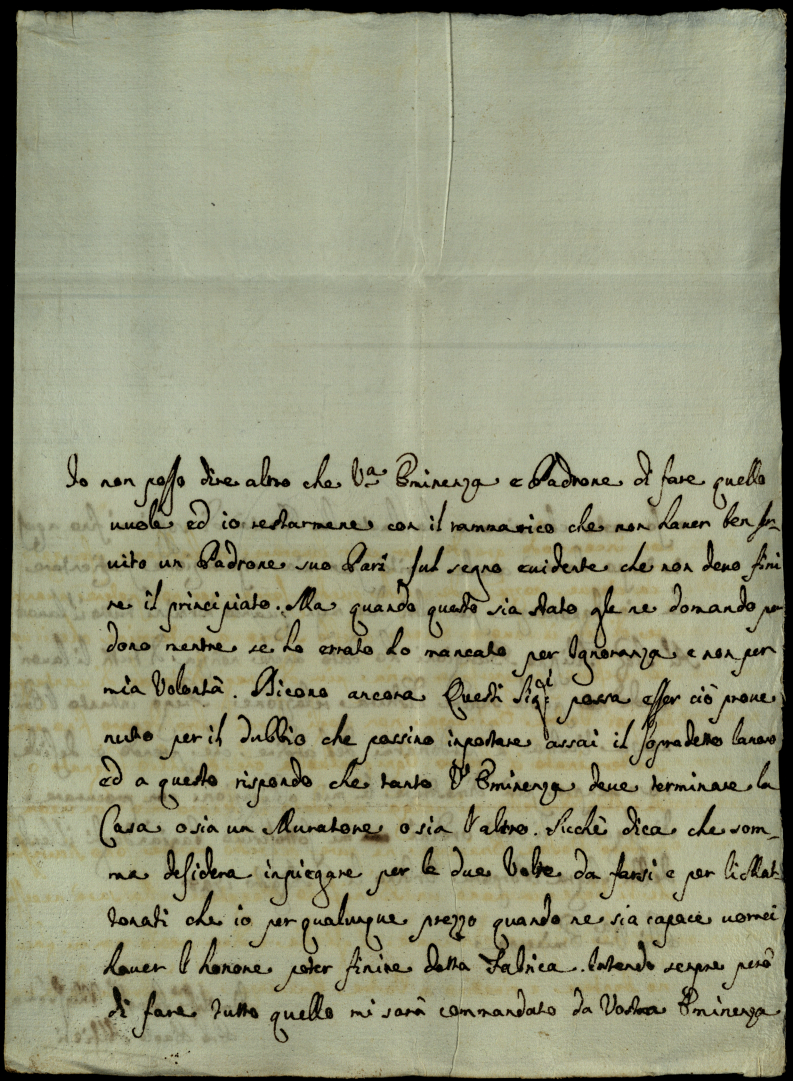 Io non posso dire altro che V.a Eminenza e Padrone di fare quello
vuole ed io restarmene con il rammarico che non haver ben ser-
vito un Padrone suo Pari sul segno evidente che non devo fini
re il principiato. Ma quando questo sia stato gle ne domando per
dono mentre se ho errato ho mancato per Ignoranza e non per
mia Volontà. Dicono ancora Questi Sig.ri possa esser ciò prove
nuto per il dubbio che possino inportare assai il sopradetto lavoro
ed a questo rispondo che tanto V.a Eminenza deve terminare la
Casa o sia un Muratore o sia l altro. Sicchè dica che som-
ma desidera inpiegare per le due Volte da farsi e per li Mat-
tonati che io per qualunque prezzo quando ne sia capace vorrei
haver l honore poter finire detta Fabrica. Intendo senpre però
di fare tutto quello mi sarà commandato da Vostra Eminenza